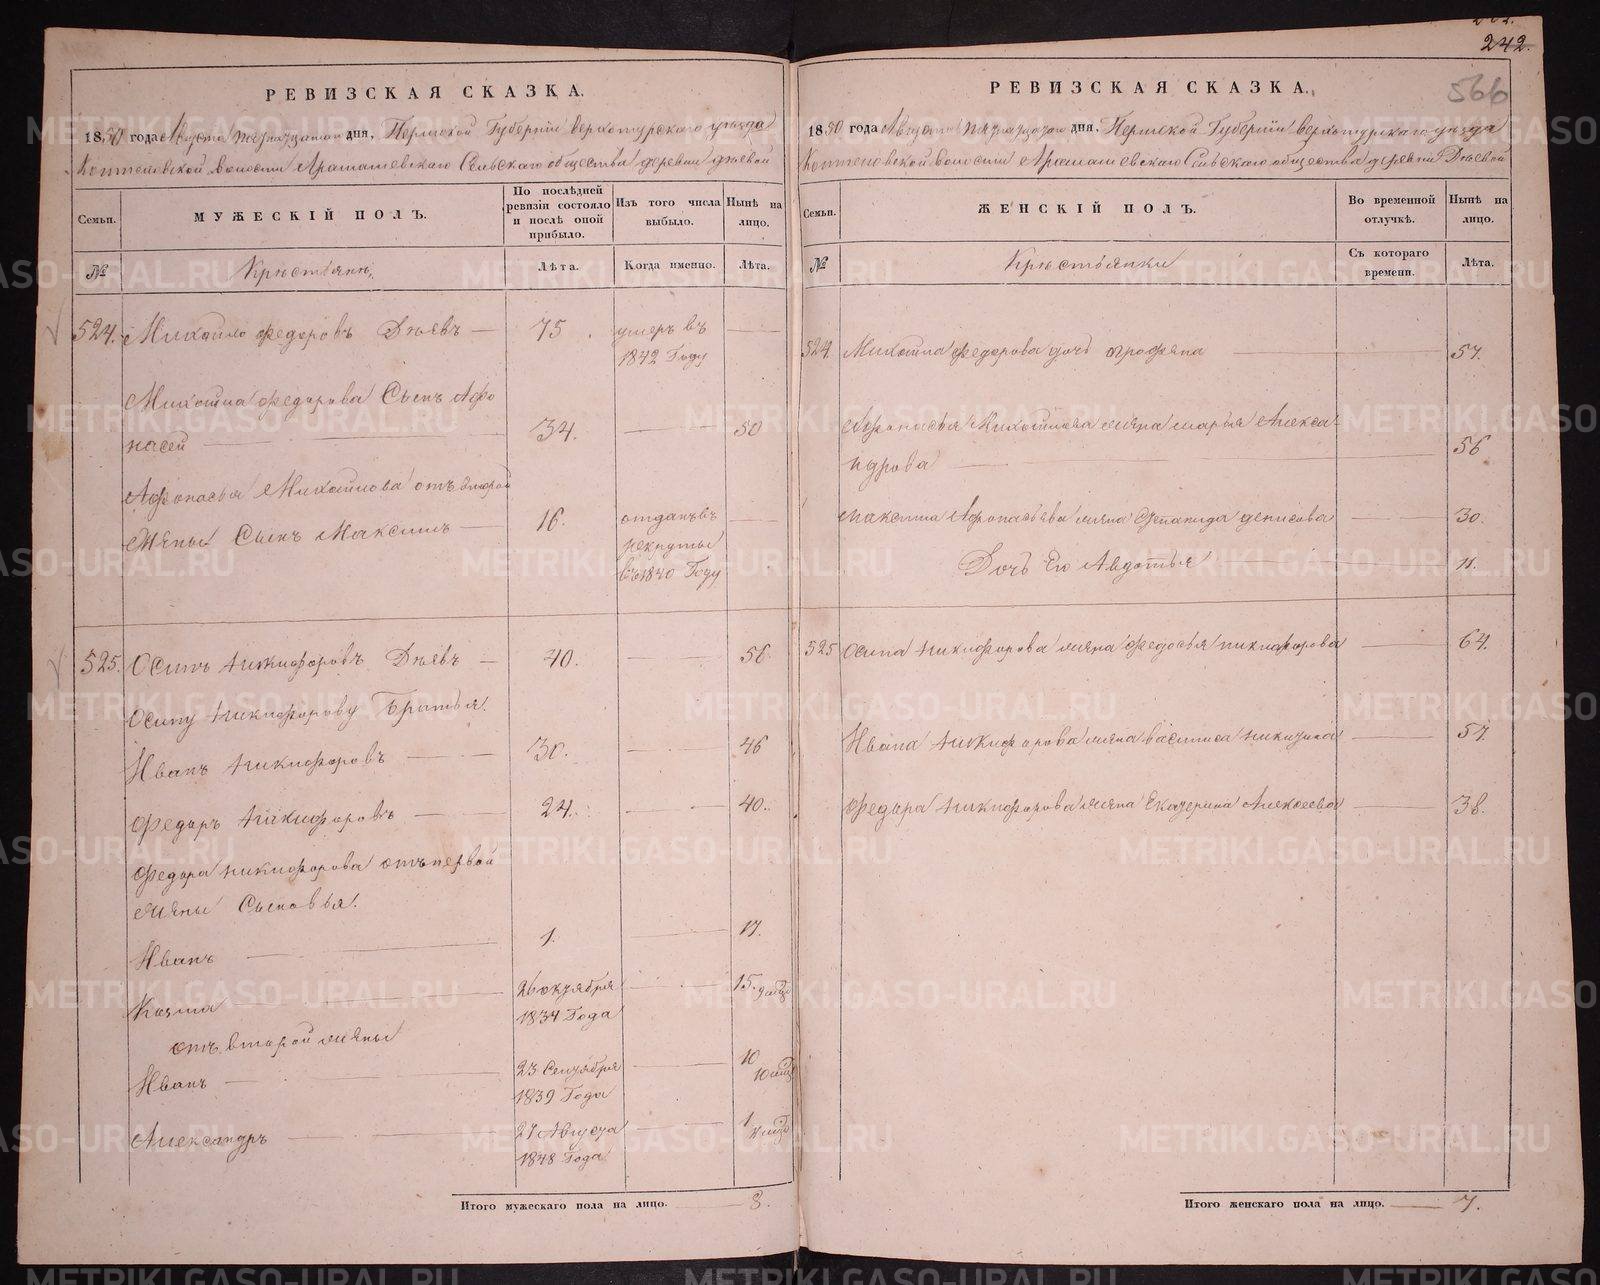 242.
566
РЕВИЗСКАЯ СКАЗКА.
1850 года Августа тридцатаго дня, Пермской Губерніи верхотурскаго уезда
Коптеловской волости Арамашевскаго Сельскаго общества деревни Деевой
Семьи. МУЖЕСКІЙ ПОЛЪ. По послѣдней ревизіи состояло и послѣ оной прибыло. Изъ того числа выбыло. Нынѣ на лицо.
№ Крестьяне. Лѣта. Когда именно. Лѣта.
524. Михайло Федоровъ Деевъ 75. умеръ въ
1842 Году
Михайла Федорова Сынъ Афо
насей 34. 50
Афонасья Михайлова отъ второй
жены Сынъ Максимъ 16. отданъ въ
рекруты
въ 1840 Году
525. Осипъ Никифоровъ Деевъ 40. 56.
Осипу Никифорову Братья.
Иванъ Никифоровъ 30. 46
Федоръ Никифоровъ 24. 40.
Федора Никифорова отъ первой
жены Сыновья.
Иванъ 1. 17.
Козма 26 октября 15.
1834 Года
отъ второй жены
Иванъ 23 Сентября 10
1839 Года
Александръ 27 Августа 1
1848 Года
Итого мужескаго пола на лицо. 8.
РЕВИЗСКАЯ СКАЗКА.
1850 года Августа тридцатаго дня, Пермской Губерніи верхотурскаго уезда
Коптеловской волости Арамашевскаго Сельскаго общества деревни Деевой
Семьи. ЖЕНСКІЙ ПОЛЪ. Во временной отлучкѣ. Нынѣ на лицо.
№ Крестьянки Съ котораго времени. Лѣта.
524 Михайла Федорова дочь Аграфена 57.
Афонасья Михайлова жена марья Алекса-
ндрова 56
максима Афонасьева жена Степанида денисова 30.
Дочь Его Авдотья 11.
525 Осипа Никифорова жена Федосья никифорова 64.
Ивана Никифорова жена василиса никитина 57.
Федора Никифорова жена Екатерина Алексеева 38.
Итого женскаго пола на лицо. 7.
METRIKI.GASO-URAL.RU